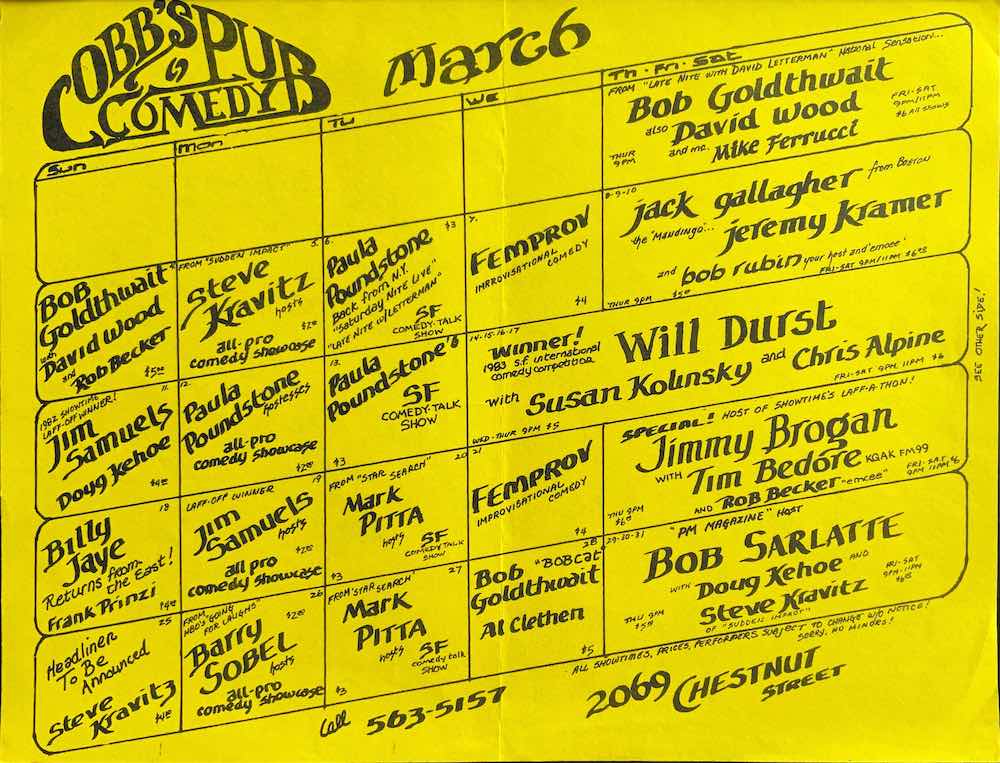 COBB'S PUB
COMEDY
March
Sun
Mon
Tu
We
Th · Fri · Sat
FROM "LATE NITE WITH DAVID LETTERMAN" National Sensation...
Bob Goldthwait
also David Wood
and mc. Mike Ferrucci
THUR 9PM
FRI-SAT
9PM/11PM
$6 All Shows
4.
Bob
Goldthwait
with
David Wood
and
Rob Becker
$500
FROM "SUDDEN IMPACT" 5.
Steve
Kravitz
hosts
$200
all-pro
comedy showcase
6. $3
Paula
Poundstone
Back from N.Y.
"Saturday Nite Live"
"Late Nite w/Letterman"
SF
COMEDY-TALK
SHOW
7.
FEMPROV
IMPROVISATIONAL
COMEDY
$4
8-9-10
jack gallagher from Boston
the 'Mandingo'... jeremy Kramer
and bob rubin your host and 'emcee'
THUR 9PM $500
FRI-SAT 9PM/11PM $600
1982 SHOWTIME 11.
LAFF-OFF WINNER!
Jim
Samuels
Doug Kehoe
$400
12.
Paula
Poundstone
hostesses
all-pro
comedy showcase
$200
13.
Paula
Poundstone's
SF
COMEDY-TALK
SHOW
$3
14-15-16-17
Winner!
1983 S.F. international
comedy competition
Will Durst
with Susan Kolinsky and Chris Alpine
WED-THUR 9PM $5
FRI-SAT 9PM, 11PM $6
18
Billy
Jaye
Returns from
the East!
Frank Prinzi
$400
LAFF-OFF WINNER 19
Jim
Samuels
hosts
$200
all pro
comedy showcase
FROM "STAR SEARCH" 20
Mark
PITTA
hosts
SF
COMEDY TALK
SHOW
$3
21
FEMPROV
IMPROVISATIONAL
COMEDY
$4
SPECIAL!! HOST OF SHOWTIME'S LAFF-A-THON!
Jimmy Brogan
WITH Tim Bedore KQAK FM99
AND Rob Becker "emcee"
THU 9PM
$600
FRI-SAT
9PM 11PM $6
25
Headliner
To Be
Announced
Steve
Kravitz
$400
FROM 26
HBO'S "GOING
FOR LAUGHS" $200
Barry
SOBEL
hosts
all-pro
comedy showcase
FROM "STAR SEARCH" 27
Mark
PITTA
hosts
SF
comedy talk
SHOW
$3
28
Bob "BOBCat"
Goldthwait
Al Clethen
$5
29-30-31
"PM MAGAZINE" HOST
BOB SARLATTE
WITH Doug Kehoe AND
Steve Kravitz
OF "SUDDEN IMPACT"
THU 9PM
$500
FRI-SAT
9PM-11PM
$600
ALL SHOWTIMES, PRICES, PERFORMERS SUBJECT TO CHANGE W/O NOTICE!
SORRY, NO MINORS!
SEE OTHER SIDE!
Call 563-5157
2069 CHESTNUT
STREET